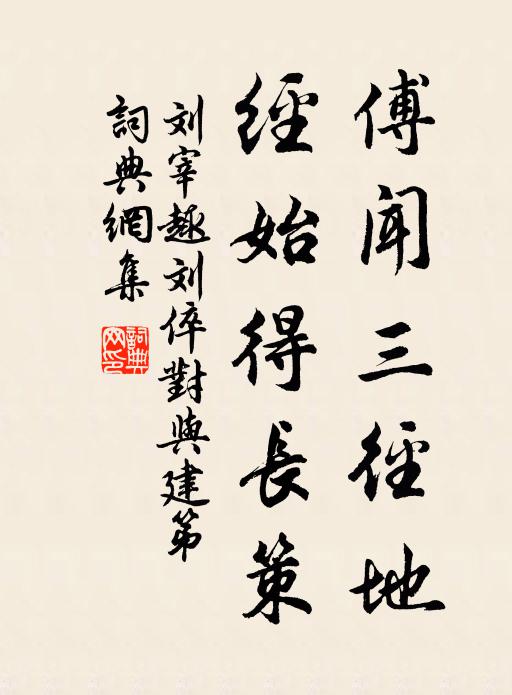 傅闻三径地
經始得長策
刘宰趣刘倅對與建第
詞典網集
詞典網印